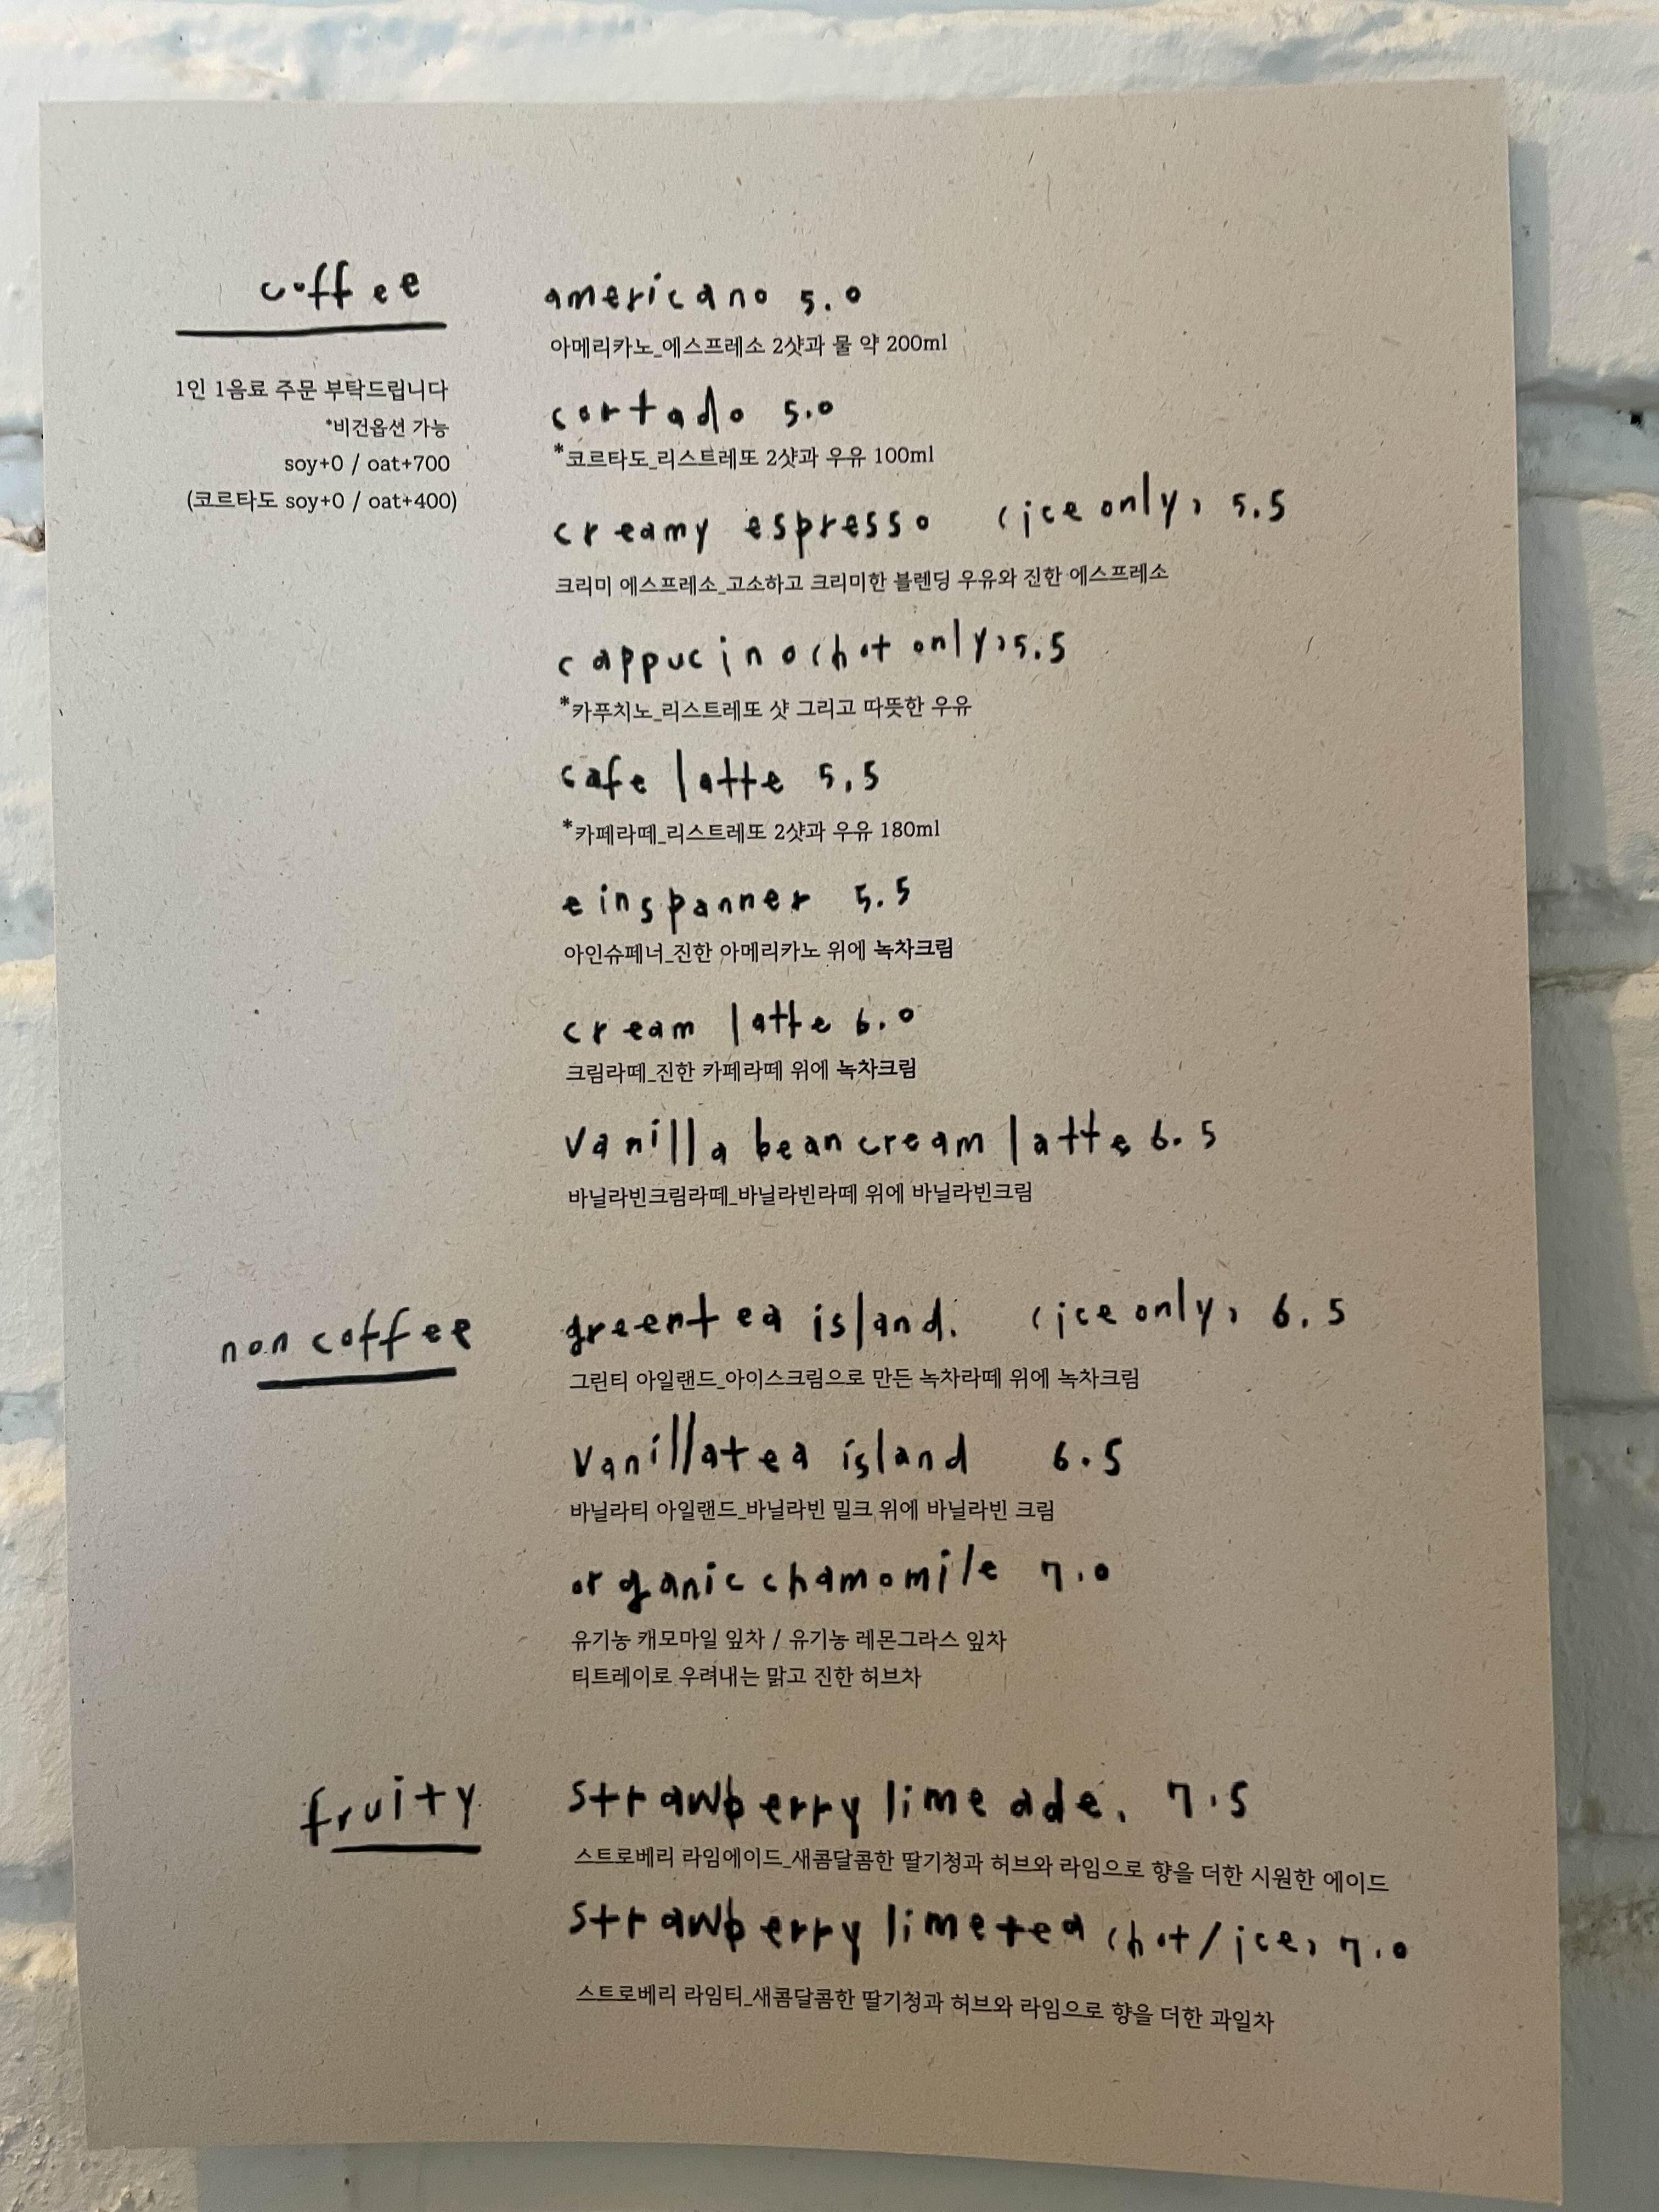 coffee
1인 1음료 주문 부탁드립니다
*비건옵션 가능
soy+0 / oat+700
(코르타도 soy+0 / oat+400)
americano 5.0
아메리카노_에스프레소 2샷과 물 약 200ml
cortado 5.0
*코르타도_리스트레또 2샷과 우유 100ml
creamy espresso (ice only) 5.5
크리미 에스프레소_고소하고 크리미한 블렌딩 우유와 진한 에스프레소
cappucino (hot only) 5.5
*카푸치노_리스트레또 샷 그리고 따뜻한 우유
cafe latte 5.5
*카페라떼_리스트레또 2샷과 우유 180ml
einspanner 5.5
아인슈페너_진한 아메리카노 위에 녹차크림
cream latte 6.0
크림라떼_진한 카페라떼 위에 녹차크림
vanilla bean cream latte 6.5
바닐라빈크림라떼_바닐라빈라떼 위에 바닐라빈크림
non coffee
greentea island. (ice only) 6.5
그린티 아일랜드_아이스크림으로 만든 녹차라떼 위에 녹차크림
vanillatea island 6.5
바닐라티 아일랜드_바닐라빈 밀크 위에 바닐라빈 크림
organic chamomile 7.0
유기농 캐모마일 잎차 / 유기농 레몬그라스 잎차
티트레이로 우려내는 맑고 진한 허브차
fruity
strawberry lime ade. 7.5
스트로베리 라임에이드_새콤달콤한 딸기청과 허브와 라임으로 향을 더한 시원한 에이드
strawberry lime tea (hot/ice) 7.0
스트로베리 라임티_새콤달콤한 딸기청과 허브와 라임으로 향을 더한 과일차